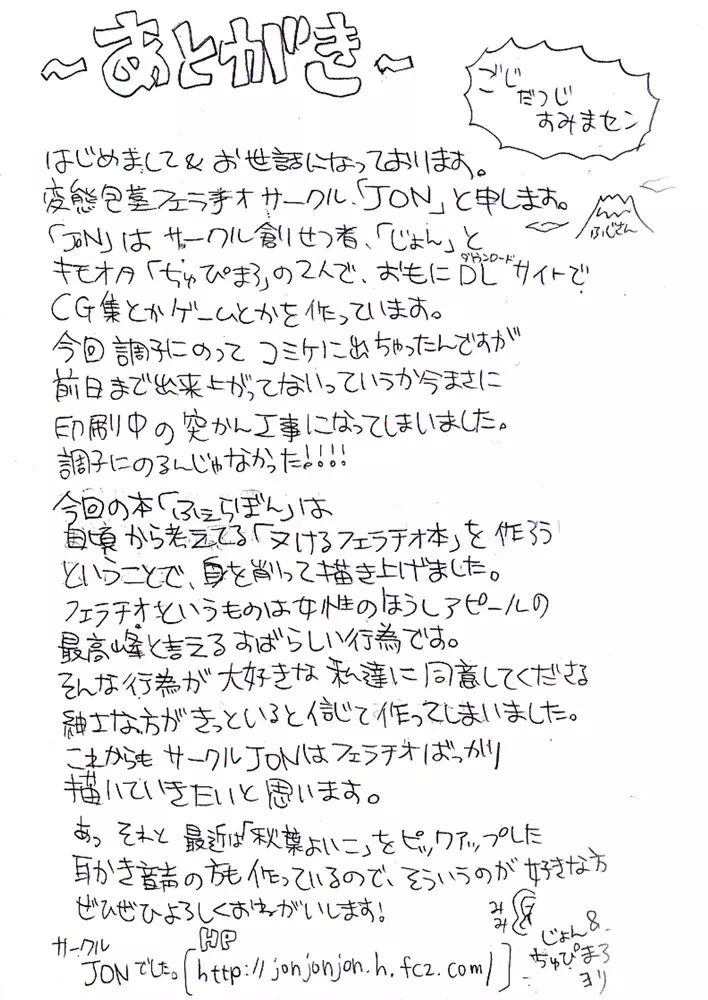 ～あとがき～
ごじ
だつじ
すみまセン
はじめまして&お世話になっております。
変態包茎フェラチオサークル、「JON」と申します。
ふじさん
「JON」はサークル創りせつ者、「じょん」と
キモオタ「ぢゅぴまろ」の2人で、おもにDLサイトで
ダウンロード
CG集とかゲームとかを作っています。
今回調子にのってコミケに出ちゃったんですが
前日まで出来上がってないっていうか今まさに
印刷中の突かん工事になってしまいました。
調子にのるんじゃなかった!!!!
今回の本「ふぇらぼん」は
日頃から考えてる「ヌけるフェラチオ本」を作ろう
ということで、身を削って描き上げました。
フェラチオというものは女性のほうしアピールの
最高峰と言えるすばらしい行為です。
そんな行為が大好きな私達に同意してくださる
紳士な方がきっといると信じて作ってしまいました。
これからもサークルJONはフェラチオばっかり
描いていきたいと思います。
あっ それと 最近は「秋葉よいこ」をピックアップした
耳かき音声の方も作っているので、そういうのが好きな方
ぜひぜひよろしくおねがいします!
みみ
サークル
JONでした。
HP
[http://jonjonjon.h.fc2.com/]
じょん&
ぢゅぴまろ
ヨリ